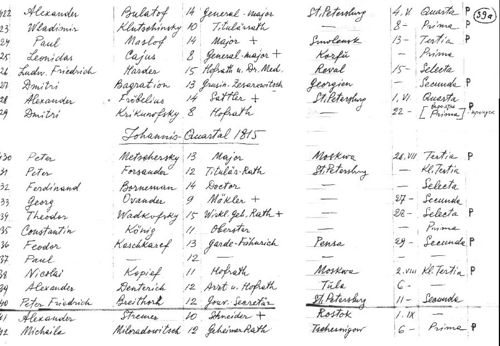 422 Alexander Poulatof 14 General-major St. Petersburg 4. V. Quarta P (39a)
23 Wladimir Klutschinsky 10 Titulärrath — 8 - Prima P
24 Paul Masloff 14 Major + Smolensk 13 - Tertia P
25 Leonidas Cajus 8 General-major + Korfu — Prima
26 Ludw. Friedrich Harder 15 Hofrath u. Dr. Med. Reval 15 - Selecta
27 Dmitri Bagration 13 Grusin. Zesarewitsch Georgien — Secunda P
28 Alexander Fröbelius 14 Sattler + St. Petersburg 1. VI. Quarta
29 Dmitri Krikunofsky 8 Hofrath — 22 - [Prima] P
Johannis-Quartal 1815
430 Peter Metschersky 13 Major Moskwa 26. VII Tertia P
31 Peter Forsander 12 Titulär-Rath St. Petersburg — Kl. Tertia
32 Ferdinand Borneman 14 Doctor — — Selecta
33 Georg Ovander 9 Mäkler + — 27 - Secunda
34 Theodor Wadkofsky 15 Wirkl. Geh. Rath + — 28 - Selecta P
35 Constantin König 11 Oberster — — Prima
36 Feodor Kaschkaref 13 Garde-Fähnrich Pensa 29 - Secunda P
37 Paul — 12 — — — —
38 Nicolai Kopief 11 Hofrath Moskwa 2. VIII Kl. Tertia P
39 Alexander Denterich 12 Arzt u. Hofrath Tula 6 -
40 Peter Friedrich Breithor 12 Gouv. Secretär St. Petersburg 11 - Secunda
41 Alexander Stremer 10 Schneider + Rostok 1. IX —
42 Michaila Miloradowitsch 12 Geheimer Rath Tschernigow 6 - Prima P